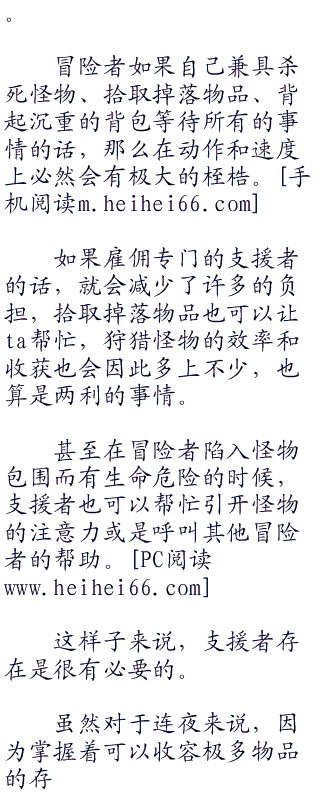 。
冒险者如果自己兼具杀
死怪物、拾取掉落物品、背
起沉重的背包等待所有的事
情的话，那么在动作和速度
上必然会有极大的桎梏。[手
机阅读m.heihei66.com]
如果雇佣专门的支援者
的话，就会减少了许多的负
担，拾取掉落物品也可以让
ta帮忙，狩猎怪物的效率和
收获也会因此多上不少，也
算是两利的事情。
甚至在冒险者陷入怪物
包围而有生命危险的时候，
支援者也可以帮忙引开怪物
的注意力或是呼叫其他冒险
者的帮助。[PC阅读
www.heihei66.com]
这样子来说，支援者存
在是很有必要的。
虽然对于连夜来说，因
为掌握着可以收容极多物品
的存